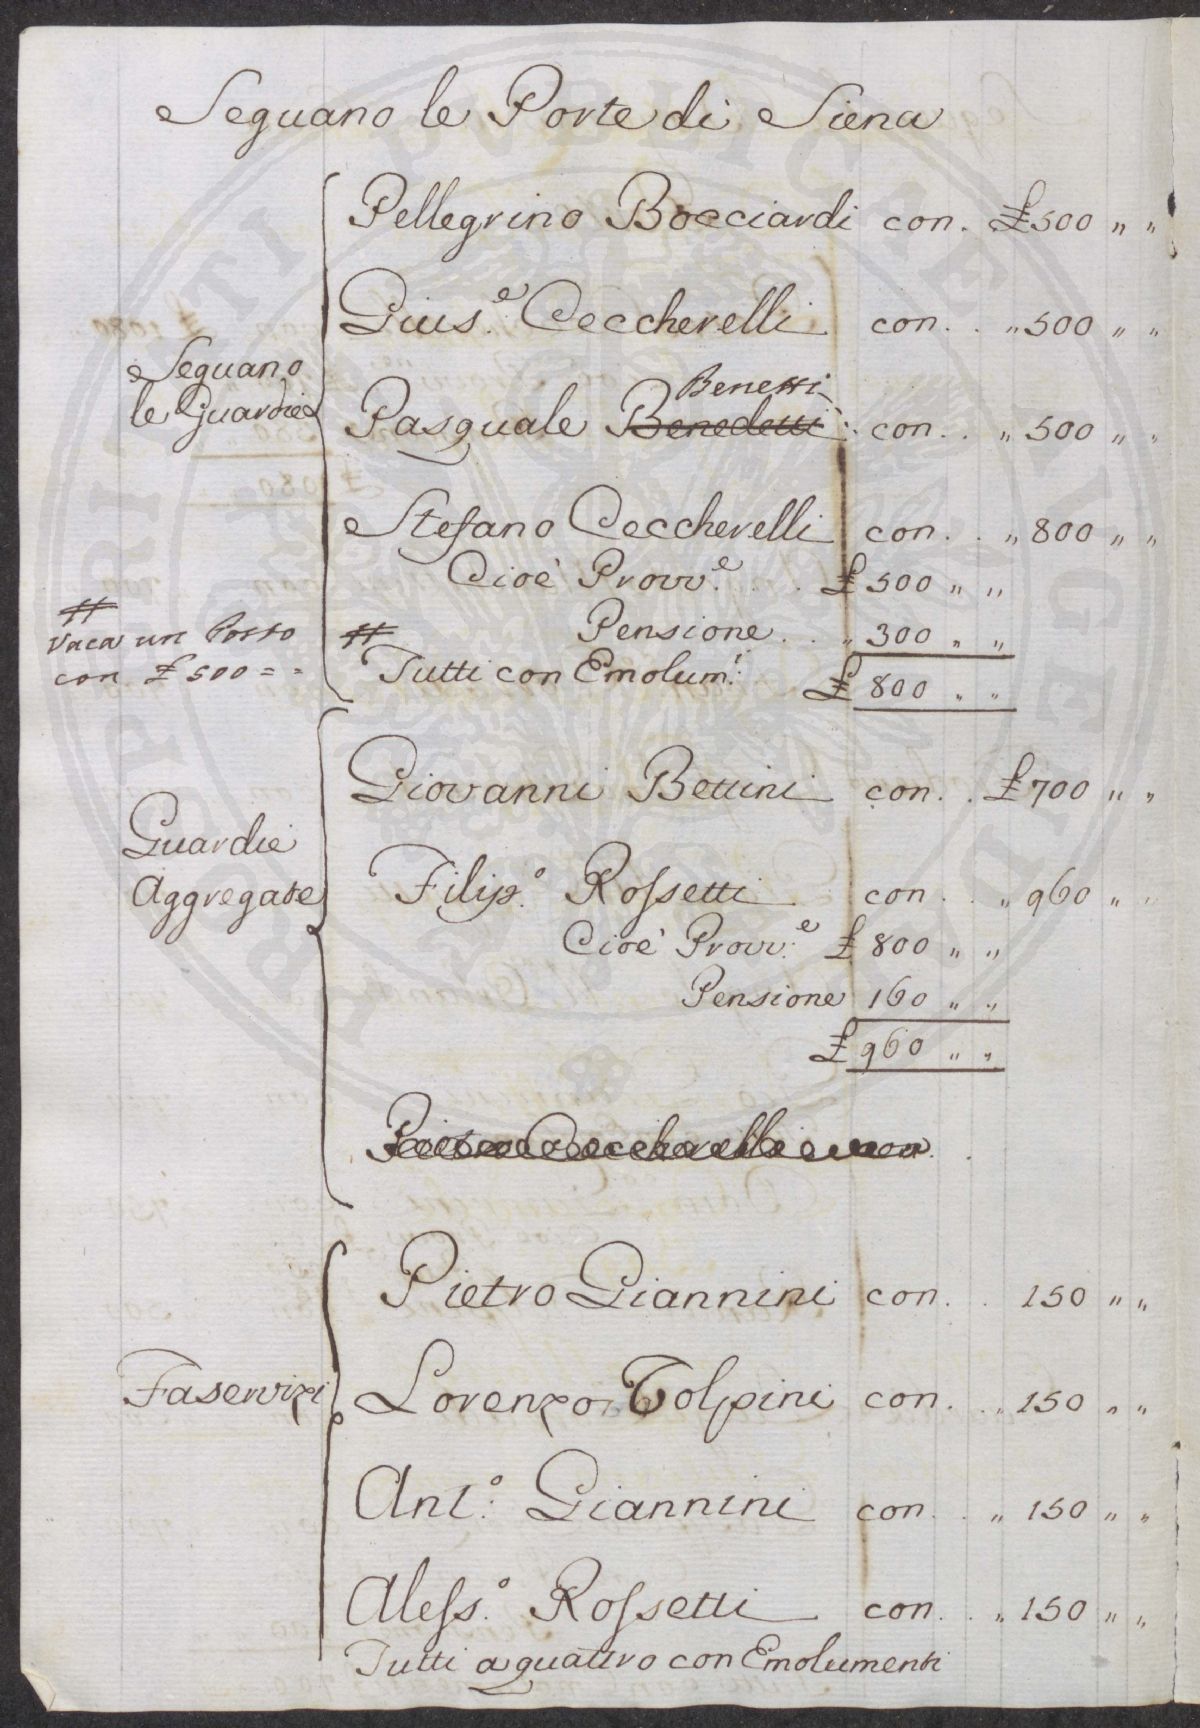 Seguano le Porte di Siena
Pellegrino Bocciardi con. £ 500 " "
Gius.e Ceccherelli con. . " 500 " "
Seguano
le Guardie
Benetti
Pasquale Benedetti con. . " 500 " "
Stefano Ceccherelli con. . " 800 " "
Cioè Provv.e . . £ 500 " "
Pensione . . " 300 " "
#
Vaca un Posto
con £ 500 = =
#
Tutti con Emolum.ti £ 800 " "
Giovanni Bettini con. . £ 700 " "
Guardie
Aggregate
Filip.o Rossetti con. . " 960 " "
Cioè Provv.e £ 800 " "
Pensione 160 " "
£ 960 " "
Ceccherelli con. .
Pietro Giannini con. . 150 " "
Faservizi
Lorenzo Tolpini con. . " 150 " "
Ant.o Giannini con. . " 150 " "
Aless.o Rossetti con. . " 150 " "
Tutti a quattro con Emolumenti